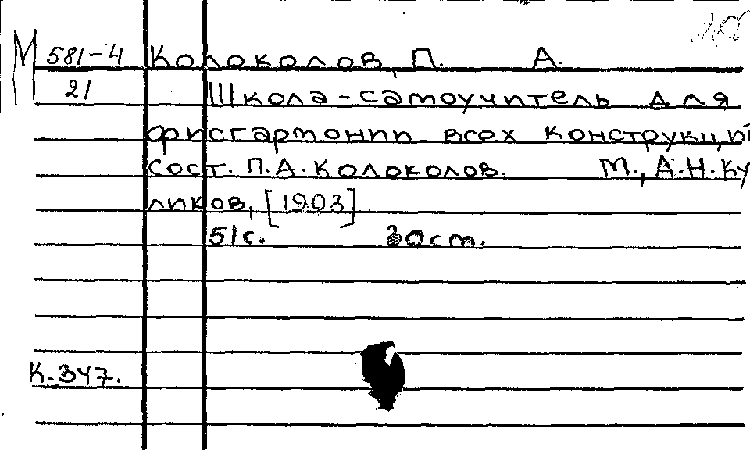 М 581-4 Колоколов, П. А.
21 Школа-самоучитель для
фисгармонии всех конструкций
сост. П.А. Колоколов. М., А.Н. Ку
ликов, [1903]
51с. 30ст.
К.347.